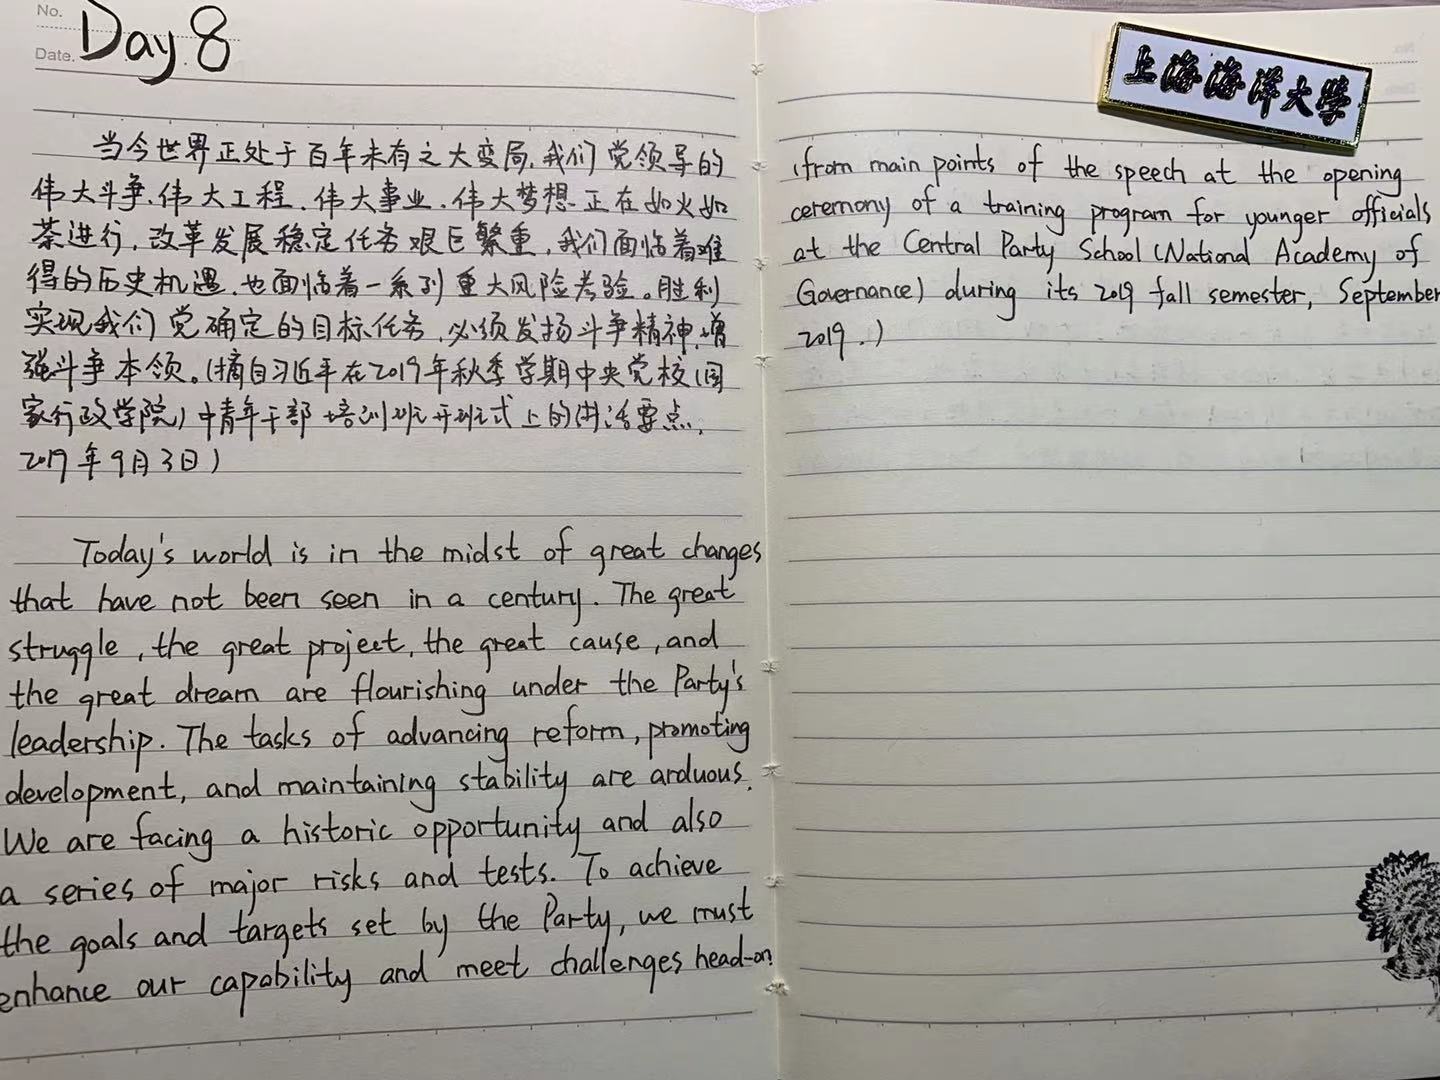 No.
Date.
Day 8
当今世界正处于百年未有之大变局,我们党领导的
伟大斗争、伟大工程、伟大事业、伟大梦想正在如火如
荼进行,改革发展稳定任务艰巨繁重,我们面临着难
得的历史机遇,也面临着一系列重大风险考验。胜利
实现我们党确定的目标任务,必须发扬斗争精神,增
强斗争本领。(摘自习近平在2019年秋季学期中央党校(国
家行政学院)中青年干部培训班开班式上的讲话要点,
2019年9月3日)
Today's world is in the midst of great changes
that have not been seen in a century. The great
struggle, the great project, the great cause, and
the great dream are flourishing under the Party's
leadership. The tasks of advancing reform, promoting
development, and maintaining stability are arduous.
We are facing a historic opportunity and also
a series of major risks and tests. To achieve
the goals and targets set by the Party, we must
enhance our capability and meet challenges head-on.
上海海洋大学
(from main points of the speech at the opening
ceremony of a training program for younger officials
at the Central Party School (National Academy of
Governance) during its 2019 fall semester, September
2019.)